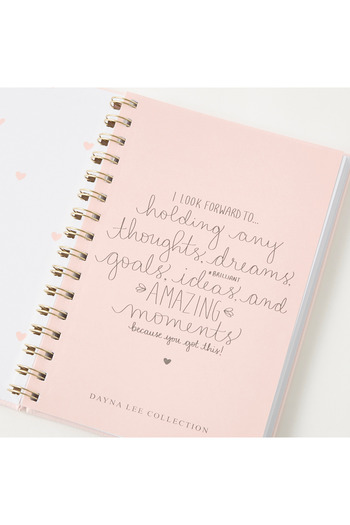 I LOOK FORWARD TO...
holding any
thoughts, dreams,
goals, ideas, and
*BRILLIANT
AMAZING
moments
because you got this!
DAYNA LEE COLLECTION